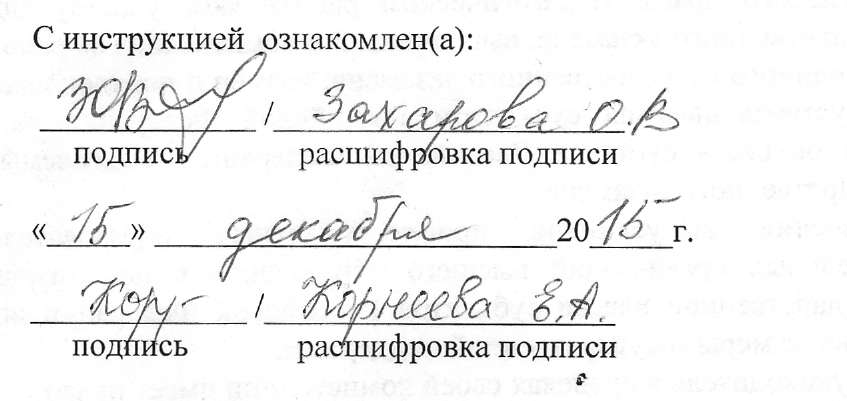 С инструкцией ознакомлен(а):
/ Захарова О.В
подпись расшифровка подписи
« 15 » декабря 2015 г.
/ Корнеева Е.А.
подпись расшифровка подписи